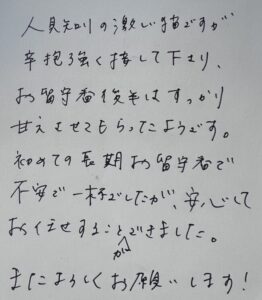 人見知りの激しい猫ですが
辛抱強く接して下さり、
お留守番後半はすっかり
甘えさせてもらってたようです。
初めての長期お留守番で
不安で一杯でしたが、安心して
おまかせすることができました。
またよろしくお願いします！